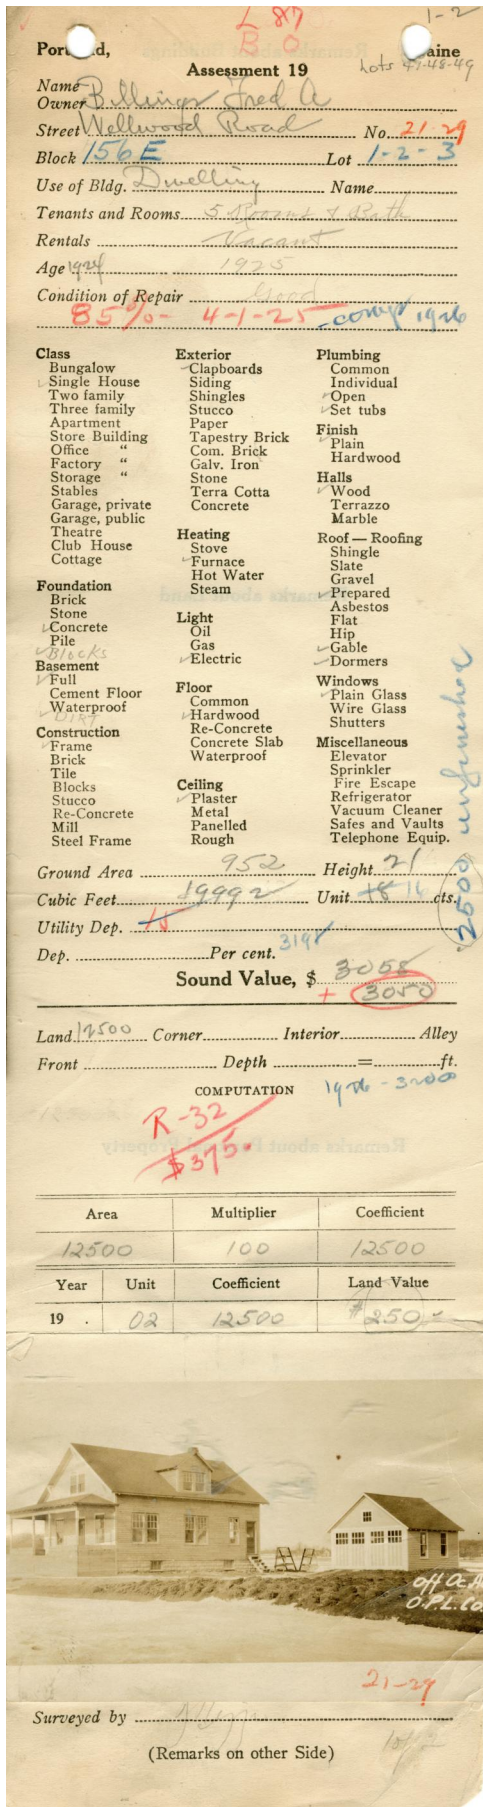 L 87
B O
1-2
Lots 47-48-49
Portland, Maine
Assessment 19
Name
Owner Billings Fred A
Street Wellwood Road No. 21-29
Block 156 E Lot 1-2-3
Use of Bldg. Dwelling Name
Tenants and Rooms 5 Rooms & Bath
Rentals Vacant
Age 1924 1925
Condition of Repair Good
85%- 4-1-25 -comp 1926
Class
Bungalow
Single House
Two family
Three family
Apartment
Store Building
Office "
Factory "
Storage "
Stables
Garage, private
Garage, public
Theatre
Club House
Cottage
Foundation
Brick
Stone
Concrete
Pile
Blocks
Basement
Full
Cement Floor
Waterproof
DIRT
Construction
Frame
Brick
Tile
Blocks
Stucco
Re-Concrete
Mill
Steel Frame
Exterior
Clapboards
Siding
Shingles
Stucco
Paper
Tapestry Brick
Com. Brick
Galv. Iron
Stone
Terra Cotta
Concrete
Heating
Stove
Furnace
Hot Water
Steam
Light
Oil
Gas
Electric
Floor
Common
Hardwood
Re-Concrete
Concrete Slab
Waterproof
Ceiling
Plaster
Metal
Panelled
Rough
Plumbing
Common
Individual
Open
Set tubs
Finish
Plain
Hardwood
Halls
Wood
Terrazzo
Marble
Roof — Roofing
Shingle
Slate
Gravel
Prepared
Asbestos
Flat
Hip
Gable
Dormers
Windows
Plain Glass
Wire Glass
Shutters
Miscellaneous
Elevator
Sprinkler
Fire Escape
Refrigerator
Vacuum Cleaner
Safes and Vaults
Telephone Equip.
2500 unfinished
Ground Area 952 Height 21
Cubic Feet 19992 Unit 18 16 cts.
Utility Dep. 15
Dep. Per cent. 3198
Sound Value, $ 3058
+ 3050
Land 12500 Corner Interior Alley
Front Depth = ft.
COMPUTATION 1926 - 3200
R-32
$375.
Area Multiplier Coefficient
12500 100 12500
Year Unit Coefficient Land Value
19 . 02 12500 $250-
off Oc.A
O.P.L.Co.
21-29
Surveyed by
(Remarks on other Side)